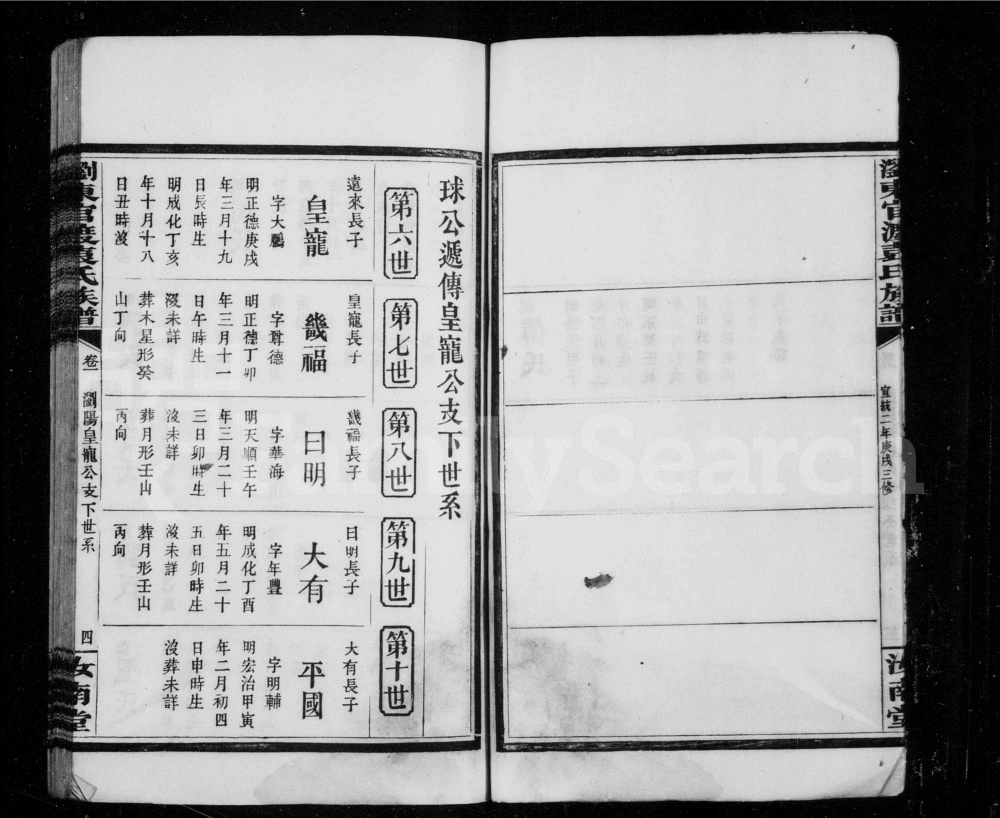 宣統二年庚戌三修
汝南堂
球公遞傳皇寵公支下世系
第六世
第七世
第八世
第九世
第十世
遠來長子
皇寵
字大鵬
明正德庚戌
年三月十九
日辰時生
明成化丁亥
年十月十八
日丑時歿
皇寵長子
畿福
字尊德
明正德丁卯
年三月十一
日午時生
歿未詳
葬木星形癸
山丁向
畿福長子
曰明
字華海
明天順壬午
年三月二十
三日卯時生
歿未詳
葬月形壬山
丙向
曰明長子
大有
字年豐
明成化丁酉
年五月二十
五日卯時生
歿未詳
葬月形壬山
丙向
大有長子
平國
字明輔
明宏治甲寅
年二月初四
日申時生
歿葬未詳
瀏東官渡袁氏族譜
卷一
瀏陽皇寵公支下世系
四
汝南堂
FamilySearch